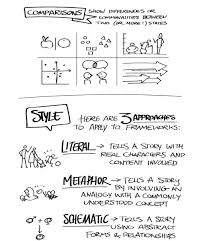 COMPARISONS: SHOW DIFFERENCES OR
COMMONALITIES BETWEEN
TWO (OR MORE!) STATES
STYLE
HERE ARE 3 APPROACHES
TO APPLY TO FRAMEWORKS:
LITERAL → TELLS A STORY WITH
REAL CHARACTERS AND
CONTENT INVOLVED
METAPHOR → TELLS A STORY
BY INVOLVING AN
ANALOGY WITH A COMMONLY
UNDERSTOOD CONCEPT
SCHEMATIC → TELLS A STORY
USING ABSTRACT
FORMS & RELATIONSHIPS